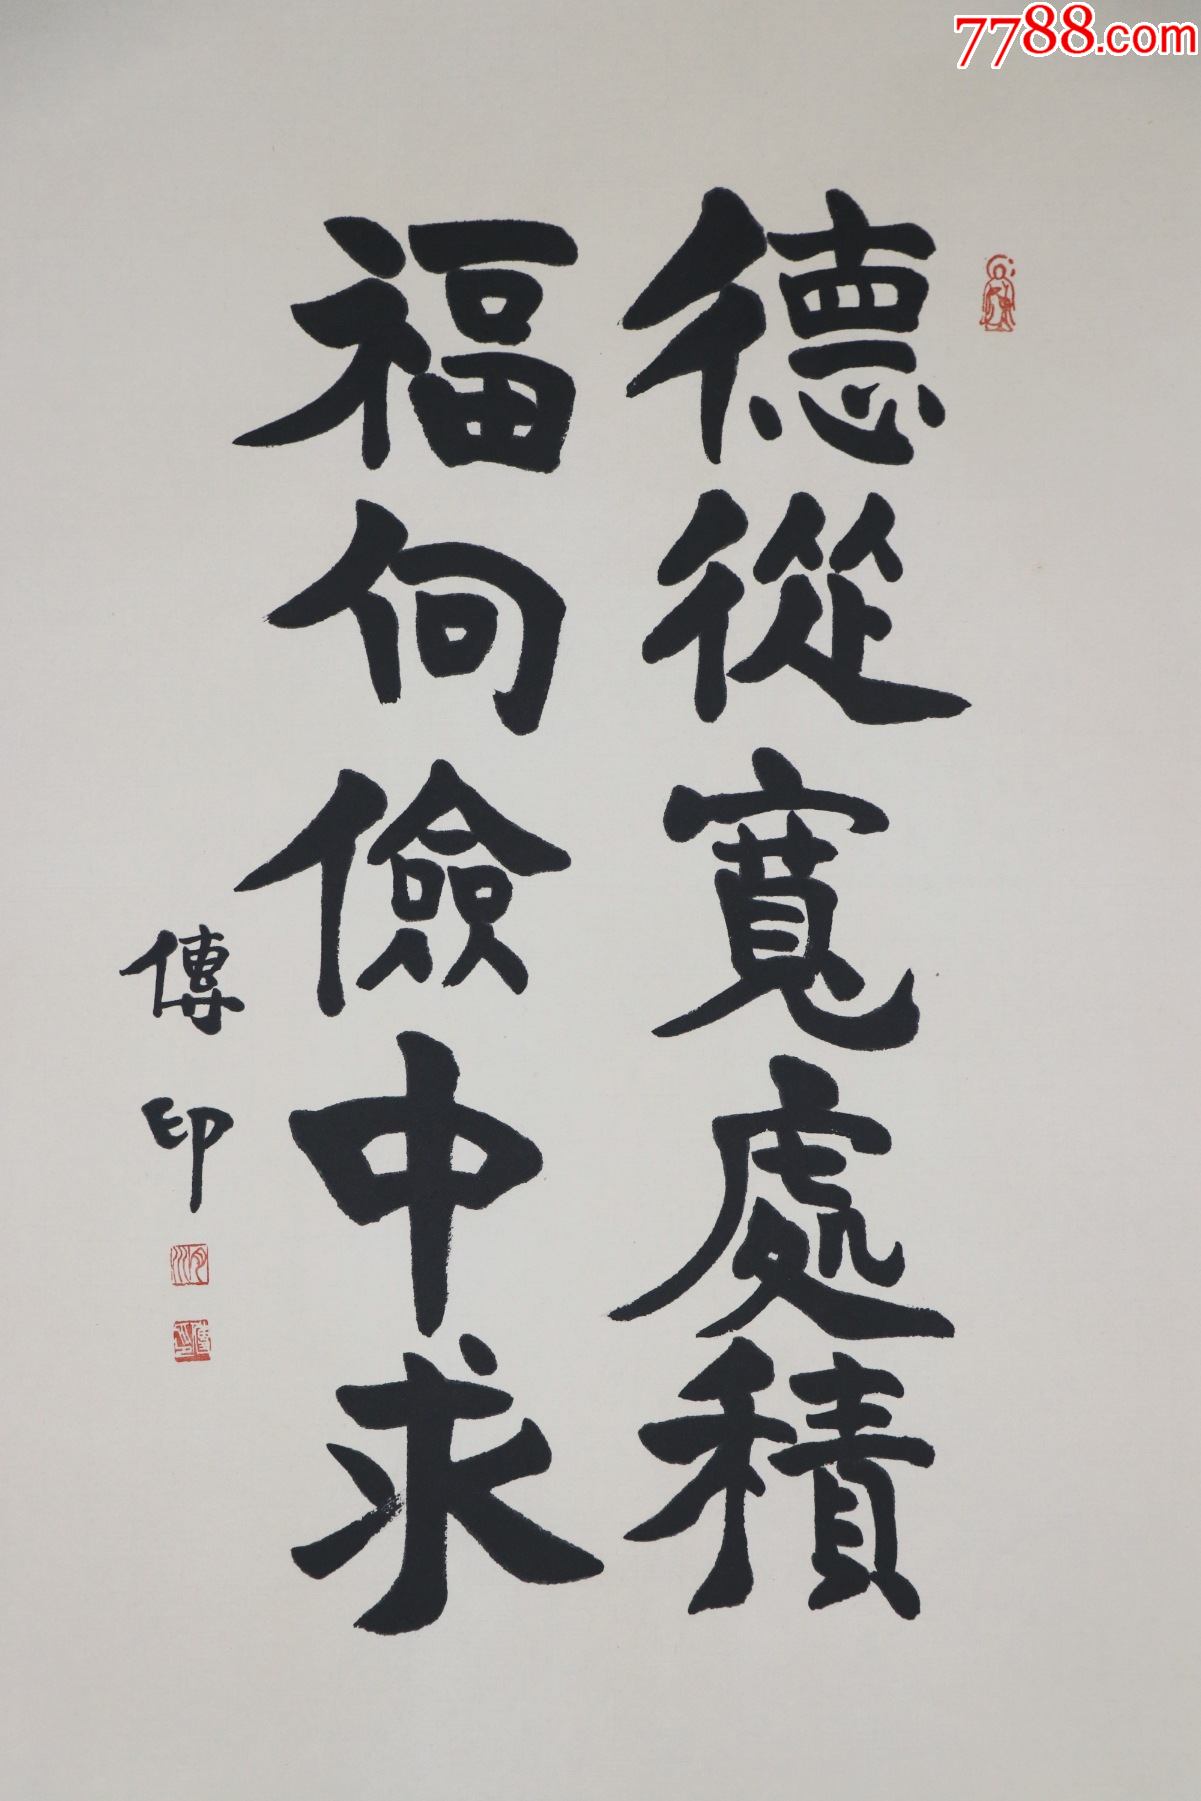 7788.com
德從寬處積
福向儉中求
傳印